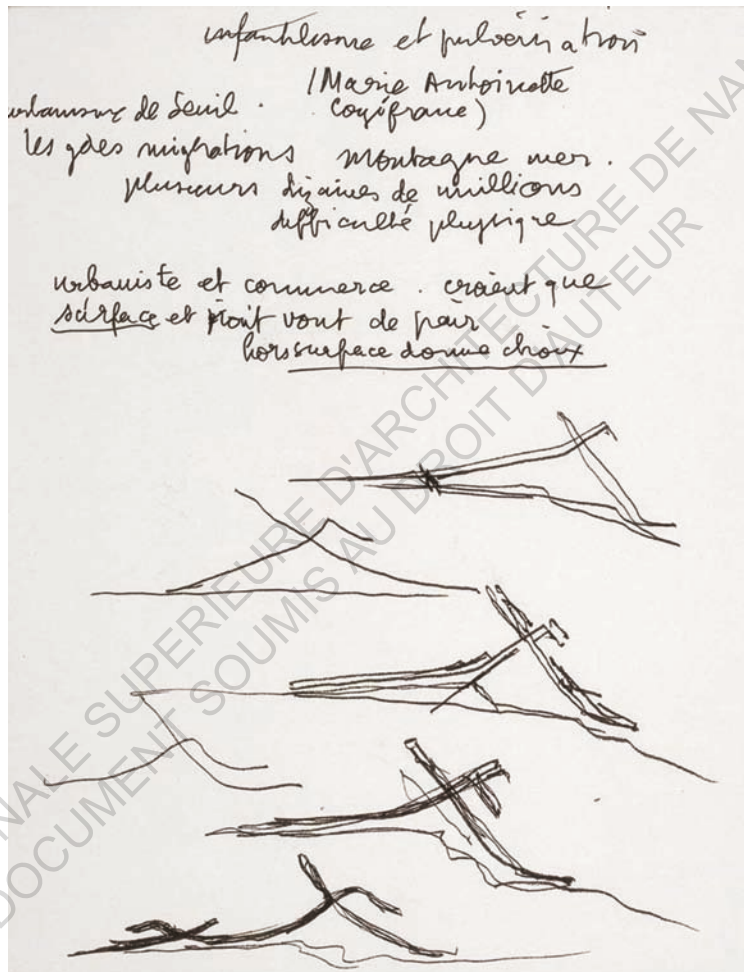 infantilisme et pulvérisation
(Marie Antoinette
urbanisme de seuil . Cogifrance)
les gdes migrations montagne mer .
plusieurs dizaines de millions
difficulté physique
urbaniste et commerce . croient que
surface et vont de pair
hors surface donne choix
NALE SUPERIEURE D'ARCHITECTURE DE NAN
DOCUMENT SOUMIS AU DROIT D'AUTEUR